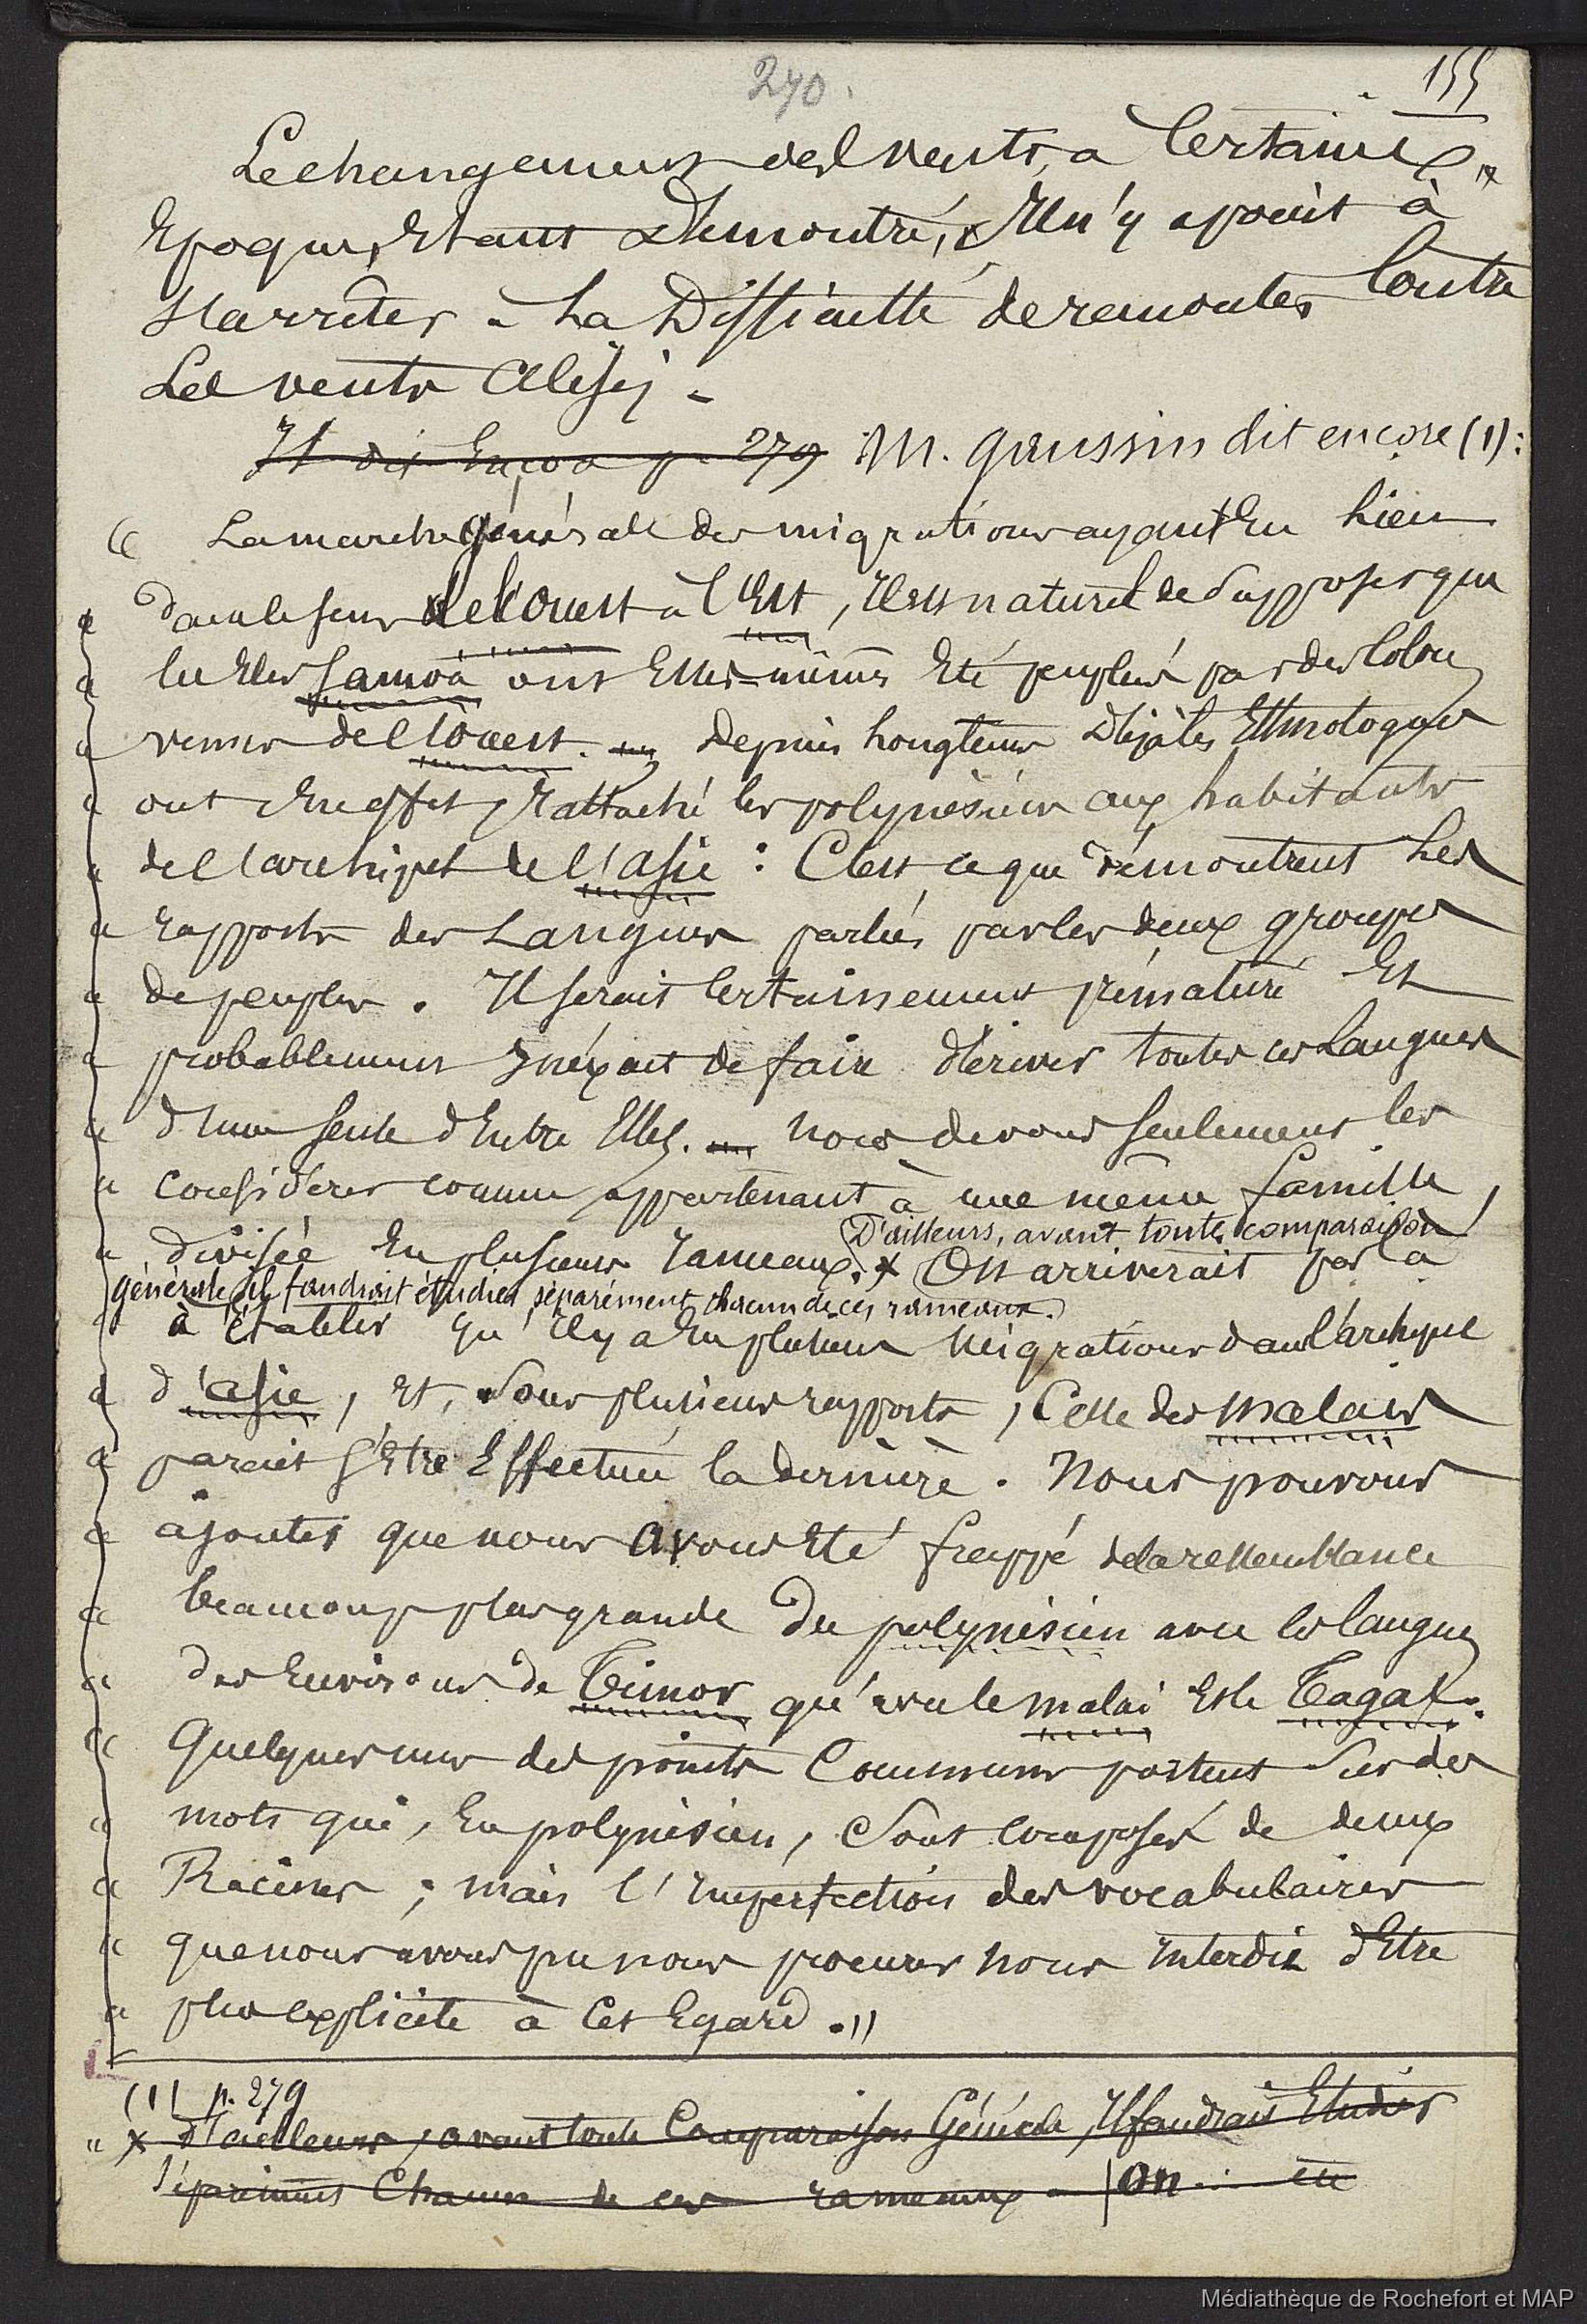 270.
155
Le changement des vents, a Certaines
Epoques, Etant Démontré, Il n'y a point à
s'arrêter - La Difficulté de remonter Contre
Les vents Alisés -
Il dit Encore p. 279 M. Gaussin dit encore (1) :
" La marche générale des migrations ayant Eu Lieu
" dans le sens de l'Ouest à l'Est, Il est naturel de Supposer que
" les Iles Samoa ont Elles-mêmes Eté peuplées par des Colons
" venus de l'Ouest. — Depuis Longtems Déjà les Ethnologues
" ont En effet, Rattaché les polynésiens aux habitants
" de l'archipel de l'Asie : C'est ce que démontrent Les
" rapports des Langues parlées par les deux groupes
" de peuples. Il serait Certainement prématuré Et
" probablement Inéxact de faire dériver toutes ces Langues
" d'une seule d'Entre Elles. — nous devons seulement les
" considérer comme appartenant à une même famille,
" divisée En plusieurs rameaux. x (D'ailleurs, avant toute comparaison
générale, il faudrait étudier séparément chacun de ces rameaux.)
On arriverait par là
" à établir qu'il y a Eu plusieurs Migrations dans l'archipel
" d'Asie, Et, Sous plusieurs rapports, Celle des Malais
" parait s'être Effectuée la dernière. Nous pouvons
" ajouter que nous avons été frappé de la ressemblance
" beaucoup plus grande du polynésien avec les langues
" des Environs de Timor qu'avec le malai Et le Tagal.
" Quelques uns des points Communs portent Sur des
" mots qui, En polynésien, Sont composés de deux
" Racines ; mais l'Imperfection des vocabulaires
" que nous avons pu nous procurer nous Interdit d'Etre
" plus explicite à Cet Egard. "
(1) p. 279
" x D'ailleurs, avant toute Comparaison Générale, Il faudrait Etudier
séparément Chacun de ces rameaux - | On ... etc
Médiathèque de Rochefort et MAP